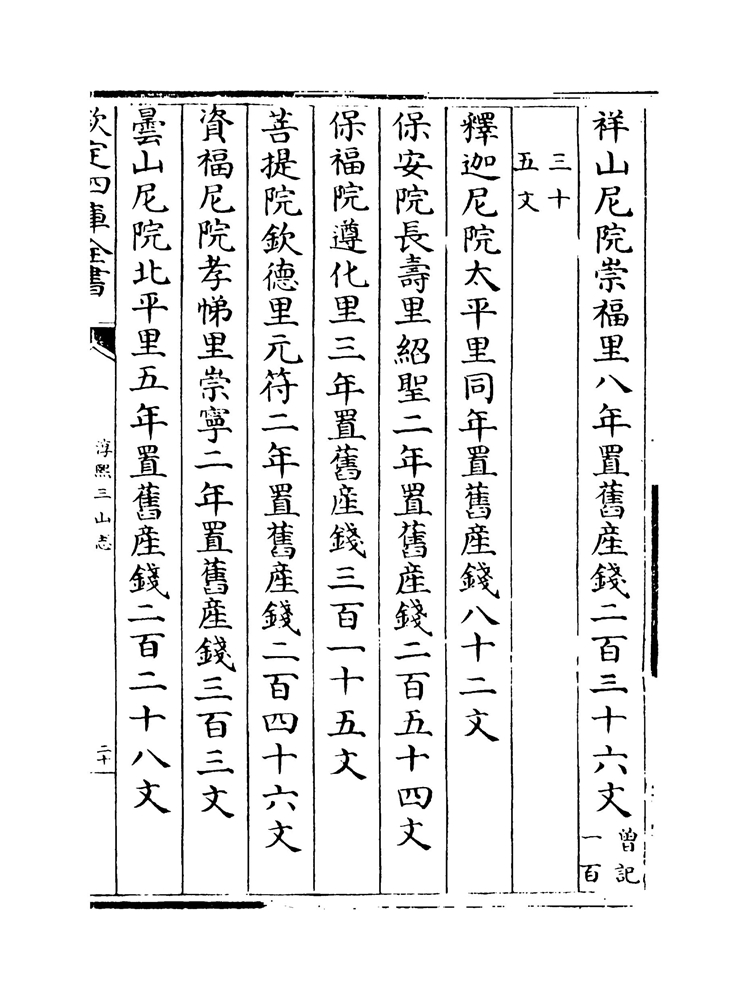 祥山尼院崇福里八年置舊産錢二百三十六文曾記一百
三十五文
釋迦尼院太平里同年置舊産錢八十二文
保安院長壽里紹聖二年置舊産錢二百五十四文
保福院遵化里三年置舊産錢三百一十五文
菩提院欽德里元符二年置舊産錢二百四十六文
資福尼院孝悌里崇寧二年置舊産錢三百三文
曇山尼院北平里五年置舊産錢二百二十八文
欽定四庫全書
淳熙三山志
二十